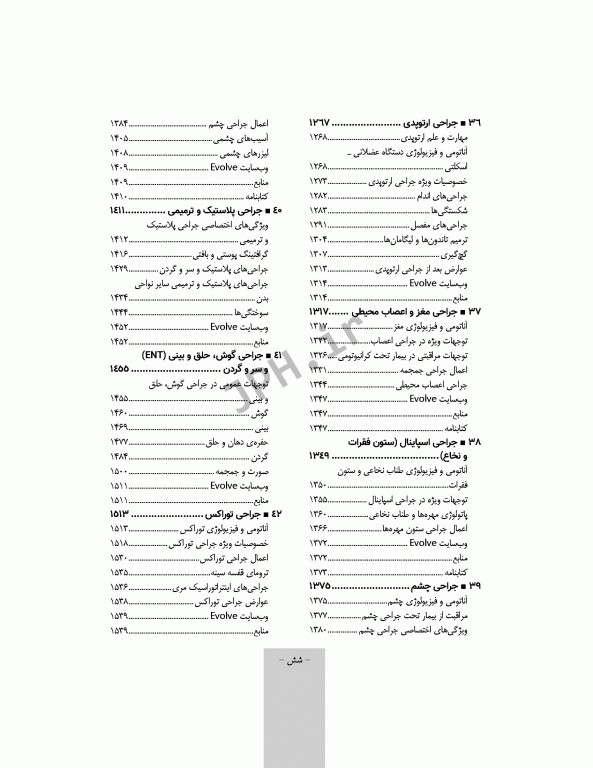 ۳۶ ■ جراحی ارتوپدی ........................ ۱۲۶۷
مهارت و علم ارتوپدی....................................۱۲۶۸
آناتومی و فیزیولوژی دستگاه عضلانی ـ
اسکلتی ....................................................۱۲۶۸
خصوصیات ویژه جراحی ارتوپدی ..................۱۲۷۳
جراحی‌های اندام ........................................۱۲۸۲
شکستگی‌ها................................................۱۲۸۳
جراحی‌های مفصل.......................................۱۲۹۱
ترمیم تاندون‌ها و لیگامان‌ها..........................۱۳۰۴
گچ‌گیری....................................................۱۳۰۷
عوارض بعد از جراحی ارتوپدی......................۱۳۱۳
وب‌سایت Evolve ......................................۱۳۱۴
منابع........................................................۱۳۱۴
۳۷ ■ جراحی مغز و اعصاب محیطی .......۱۳۱۷
آناتومی و فیزیولوژی مغز..............................۱۳۱۷
توجهات ویژه در جراحی اعصاب....................۱۳۲۲
توجهات مراقبتی در بیمار تحت کرانیوتومی....۱۳۲۶
اعمال جراحی جمجمه..................................۱۳۳۱
جراحی اعصاب محیطی................................۱۳۴۴
وب‌سایت Evolve ......................................۱۳۴۷
منابع........................................................۱۳۴۷
کتابنامه....................................................۱۳۴۷
۳۸ ■ جراحی اسپاینال (ستون فقرات
و نخاع) ..................................... ۱۳۴۹
آناتومی و فیزیولوژی طناب نخاعی و ستون
فقرات......................................................۱۳۵۰
توجهات ویژه در جراحی اسپاینال ..................۱۳۵۵
پاتولوژی مهره‌ها و طناب نخاعی....................۱۳۶۰
اعمال جراحی ستون مهره‌ها..........................۱۳۶۶
وب‌سایت Evolve ......................................۱۳۷۲
منابع........................................................۱۳۷۲
کتابنامه....................................................۱۳۷۳
۳۹ ■ جراحی چشم ........................... ۱۳۷۵
آناتومی و فیزیولوژی چشم............................۱۳۷۵
مراقبت از بیمار تحت جراحی چشم ................۱۳۷۷
ویژگی‌های اختصاصی جراحی چشم ..............۱۳۸۰
اعمال جراحی چشم ....................................۱۳۸۴
آسیب‌های چشمی......................................۱۴۰۵
لیزرهای چشمی ........................................۱۴۰۸
وب‌سایت Evolve ......................................۱۴۰۹
منابع........................................................۱۴۰۹
کتابنامه ...................................................۱۴۱۰
۴۰ ■ جراحی پلاستیک و ترمیمی ..............۱۴۱۱
ویژگی‌های اختصاصی جراحی پلاستیک
و ترمیمی .................................................۱۴۱۲
گرافتینگ پوستی و بافتی..............................۱۴۱۶
جراحی‌های پلاستیک و سر و گردن ..............۱۴۲۹
جراحی‌های پلاستیک و ترمیمی سایر نواحی
بدن.........................................................۱۴۳۴
سوختگی‌ها................................................۱۴۴۴
وب‌سایت Evolve ......................................۱۴۵۲
منابع........................................................۱۴۵۲
۴۱ ■ جراحی گوش، حلق و بینی (ENT)
و سر و گردن ............................... ۱۴۵۵
توجهات عمومی در جراحی گوش، حلق
و بینی .....................................................۱۴۵۵
گوش ......................................................۱۴۶۰
بینی.........................................................۱۴۶۹
حفره‌ی دهان و حلق....................................۱۴۷۷
گردن.......................................................۱۴۸۴
صورت و جمجمه .......................................۱۵۰۰
وب‌سایت Evolve ......................................۱۵۱۱
منابع........................................................۱۵۱۱
۴۲ ■ جراحی توراکس ......................... ۱۵۱۳
آناتومی و فیزیولوژی توراکس........................۱۵۱۳
خصوصیات ویژه جراحی توراکس..................۱۵۱۸
اعمال جراحی توراکس................................۱۵۳۰
ترومای قفسه سینه.....................................۱۵۳۵
جراحی‌های اینتراتوراسیک مری....................۱۵۳۶
عوارض جراحی توراکس..............................۱۵۳۸
وب‌سایت Evolve ......................................۱۵۳۹
منابع........................................................۱۵۳۹
- شش -
JPH.ir